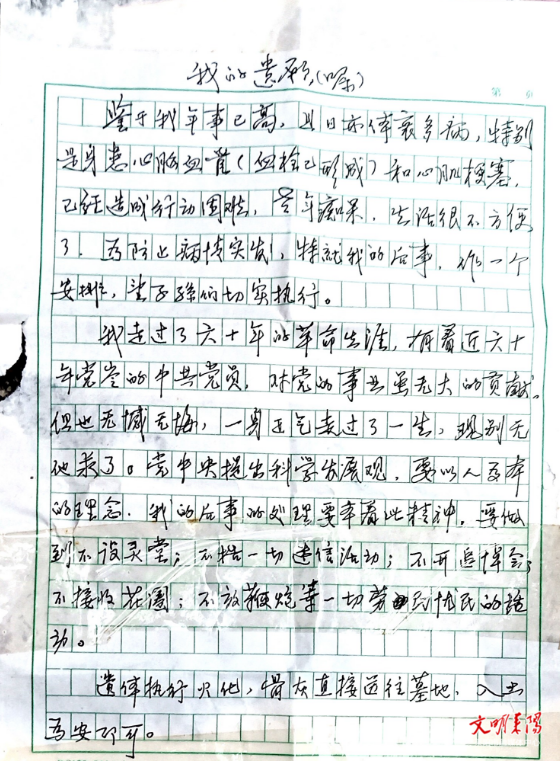 我的遗愿(嘱)
第 页
鉴于我年事已高,且日亦体衰多病,特别
是身患心脑血管(血栓已形成)和心肌梗塞,
已经造成行动困难,老年痴呆,生活很不方便
了。为防止病情突发,特就我的后事,作一个
安排,望子孙们切实执行。
我走过了六十年的革命生涯,有着近六十
年党龄的中共党员,对党的事业虽无大的贡献,
但也无憾无悔,一身正气走过了一生,现别无
他求了。党中央提出科学发展观,要以人为本
的理念,我的后事的处理要本着此精神,要做
到不设灵堂;不搞一切迷信活动;不开追悼会;
不接收花圈;不放鞭炮等一切劳民扰民的活
动。
遗体执行火化,骨灰直接送往墓地,入土
为安即可。
文明耒阳